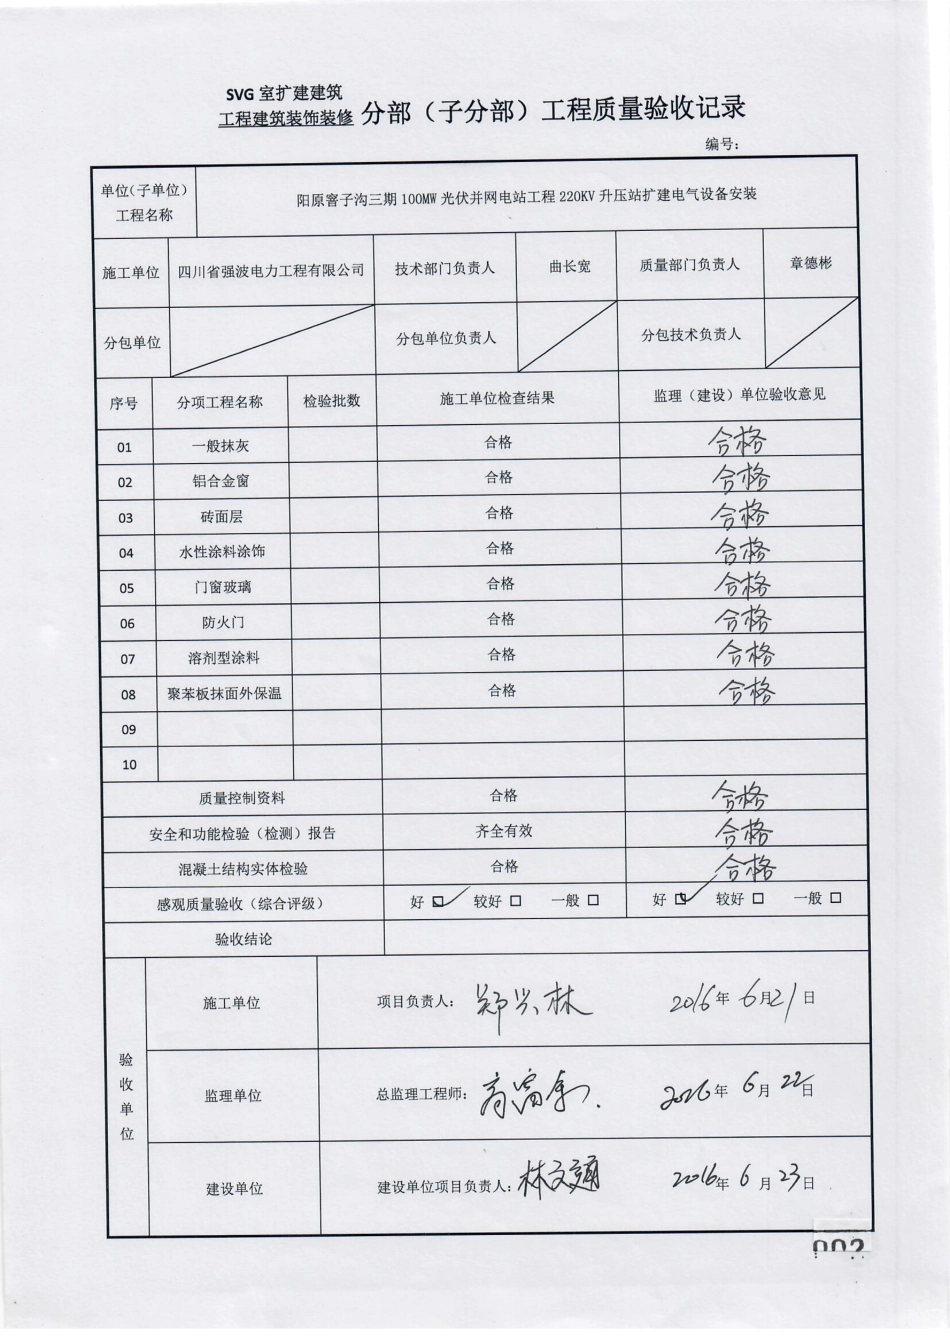 SVG 室扩建建筑
工程建筑装饰装修 分部（子分部）工程质量验收记录
编号：
单位（子单位）
工程名称
阳原窨子沟三期 100MW 光伏并网电站工程 220KV 升压站扩建电气设备安装
施工单位 四川省强波电力工程有限公司 技术部门负责人 曲长宽 质量部门负责人 章德彬
分包单位 分包单位负责人 分包技术负责人
序号 分项工程名称 检验批数 施工单位检查结果 监理（建设）单位验收意见
01 一般抹灰 合格 合格
02 铝合金窗 合格 合格
03 砖面层 合格 合格
04 水性涂料涂饰 合格 合格
05 门窗玻璃 合格 合格
06 防火门 合格 合格
07 溶剂型涂料 合格 合格
08 聚苯板抹面外保温 合格 合格
09
10
质量控制资料 合格 合格
安全和功能检验（检测）报告 齐全有效 合格
混凝土结构实体检验 合格 合格
感观质量验收（综合评级） 好 ☑ 较好 □ 一般 □ 好 ☑ 较好 □ 一般 □
验收结论
验收单位
施工单位 项目负责人： 郑兴林 2016年 6月21日
监理单位 总监理工程师： 2016年 6月 22日
建设单位 建设单位项目负责人： 林文通 2016年 6月 23日
002